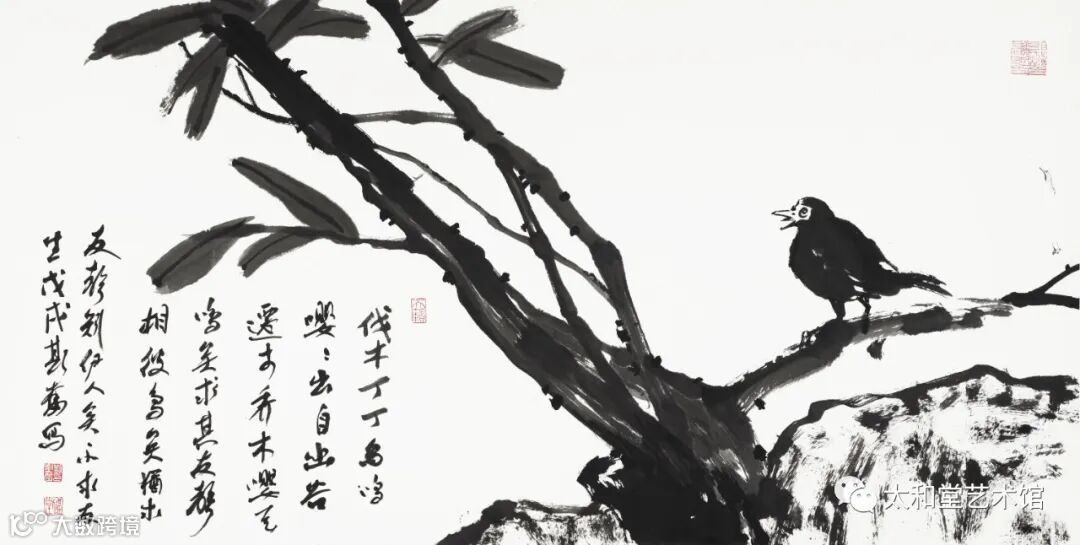 伐木丁丁鸟鸣
嚶〻出自幽谷
遷于乔木嚶其
鸣矣求其友聲
相彼鸟矣猶求
友聲矧伊人矣不求友
生戊戌斯奮写
大数跨境
太和堂艺术馆